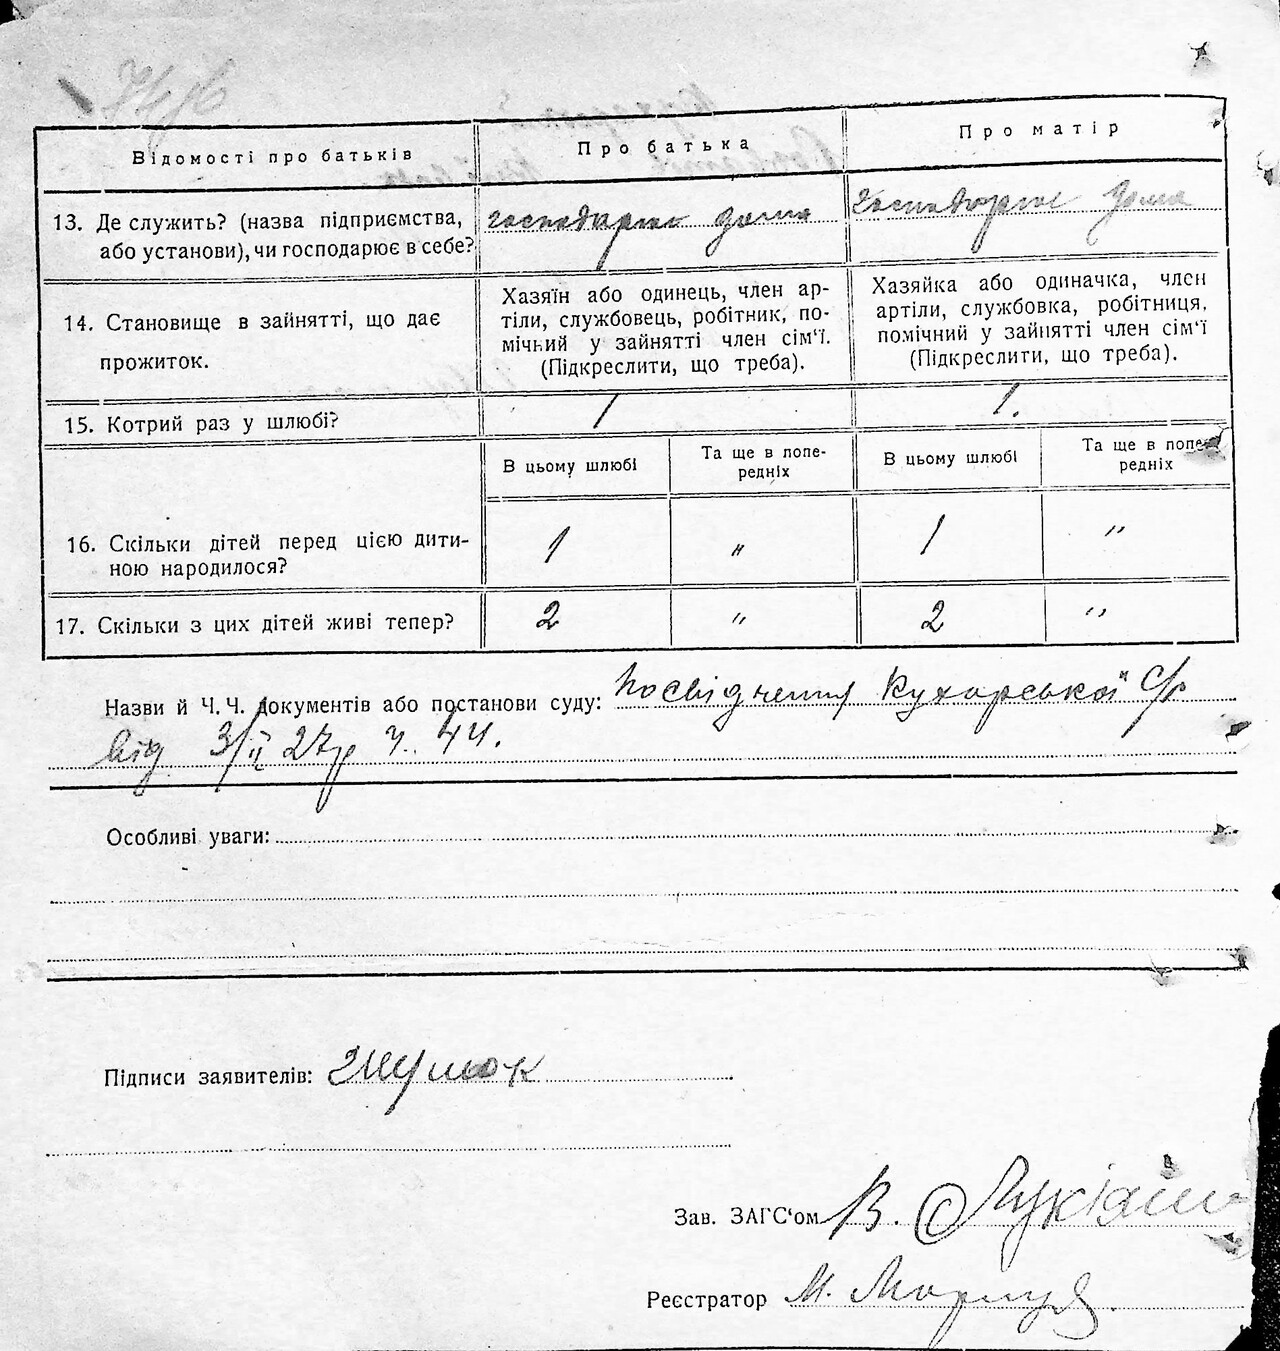 Відомості про батьків
Про батька
Про матір
13. Де служить? (назва підприємства, або установи), чи господарює в себе?
господарює дома
господарює дома
14. Становище в зайнятті, що дає прожиток.
Хазяїн або одинець, член ар-
тіли, службовець, робітник, по-
мічний у зайнятті член сім‘ї.
(Підкреслити, що треба).
Хазяйка або одиначка, член
артіли, службовка, робітниця,
помічний у зайнятті член сім‘ї
(Підкреслити, що треба).
15. Котрий раз у шлюбі?
1
1.
В цьому шлюбі
Та ще в попе-
редніх
В цьому шлюбі
Та ще в попе-
редніх
16. Скільки дітей перед цією дити-
ною народилося?
1
"
1
"
17. Скільки з цих дітей живі тепер?
2
"
2
"
Назви й Ч. Ч. документів або постанови суду: Посвідчення Кухарської С/р
від 3/II 27р ч. 44.
Особливі уваги:
Підписи заявителів:
Зав. ЗАГС‘ом В.
Реєстратор М.